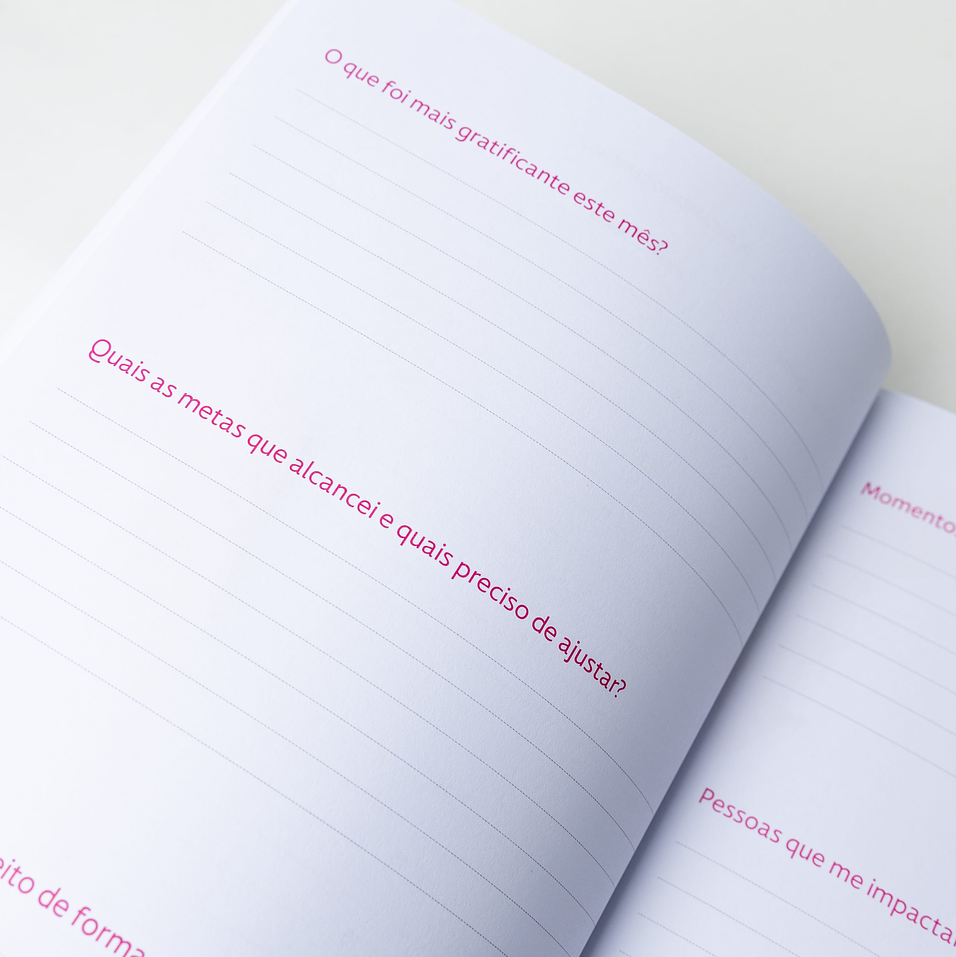 O que foi mais gratificante este mês?
Quais as metas que alcancei e quais preciso de ajustar?
de forma
Pessoas que me